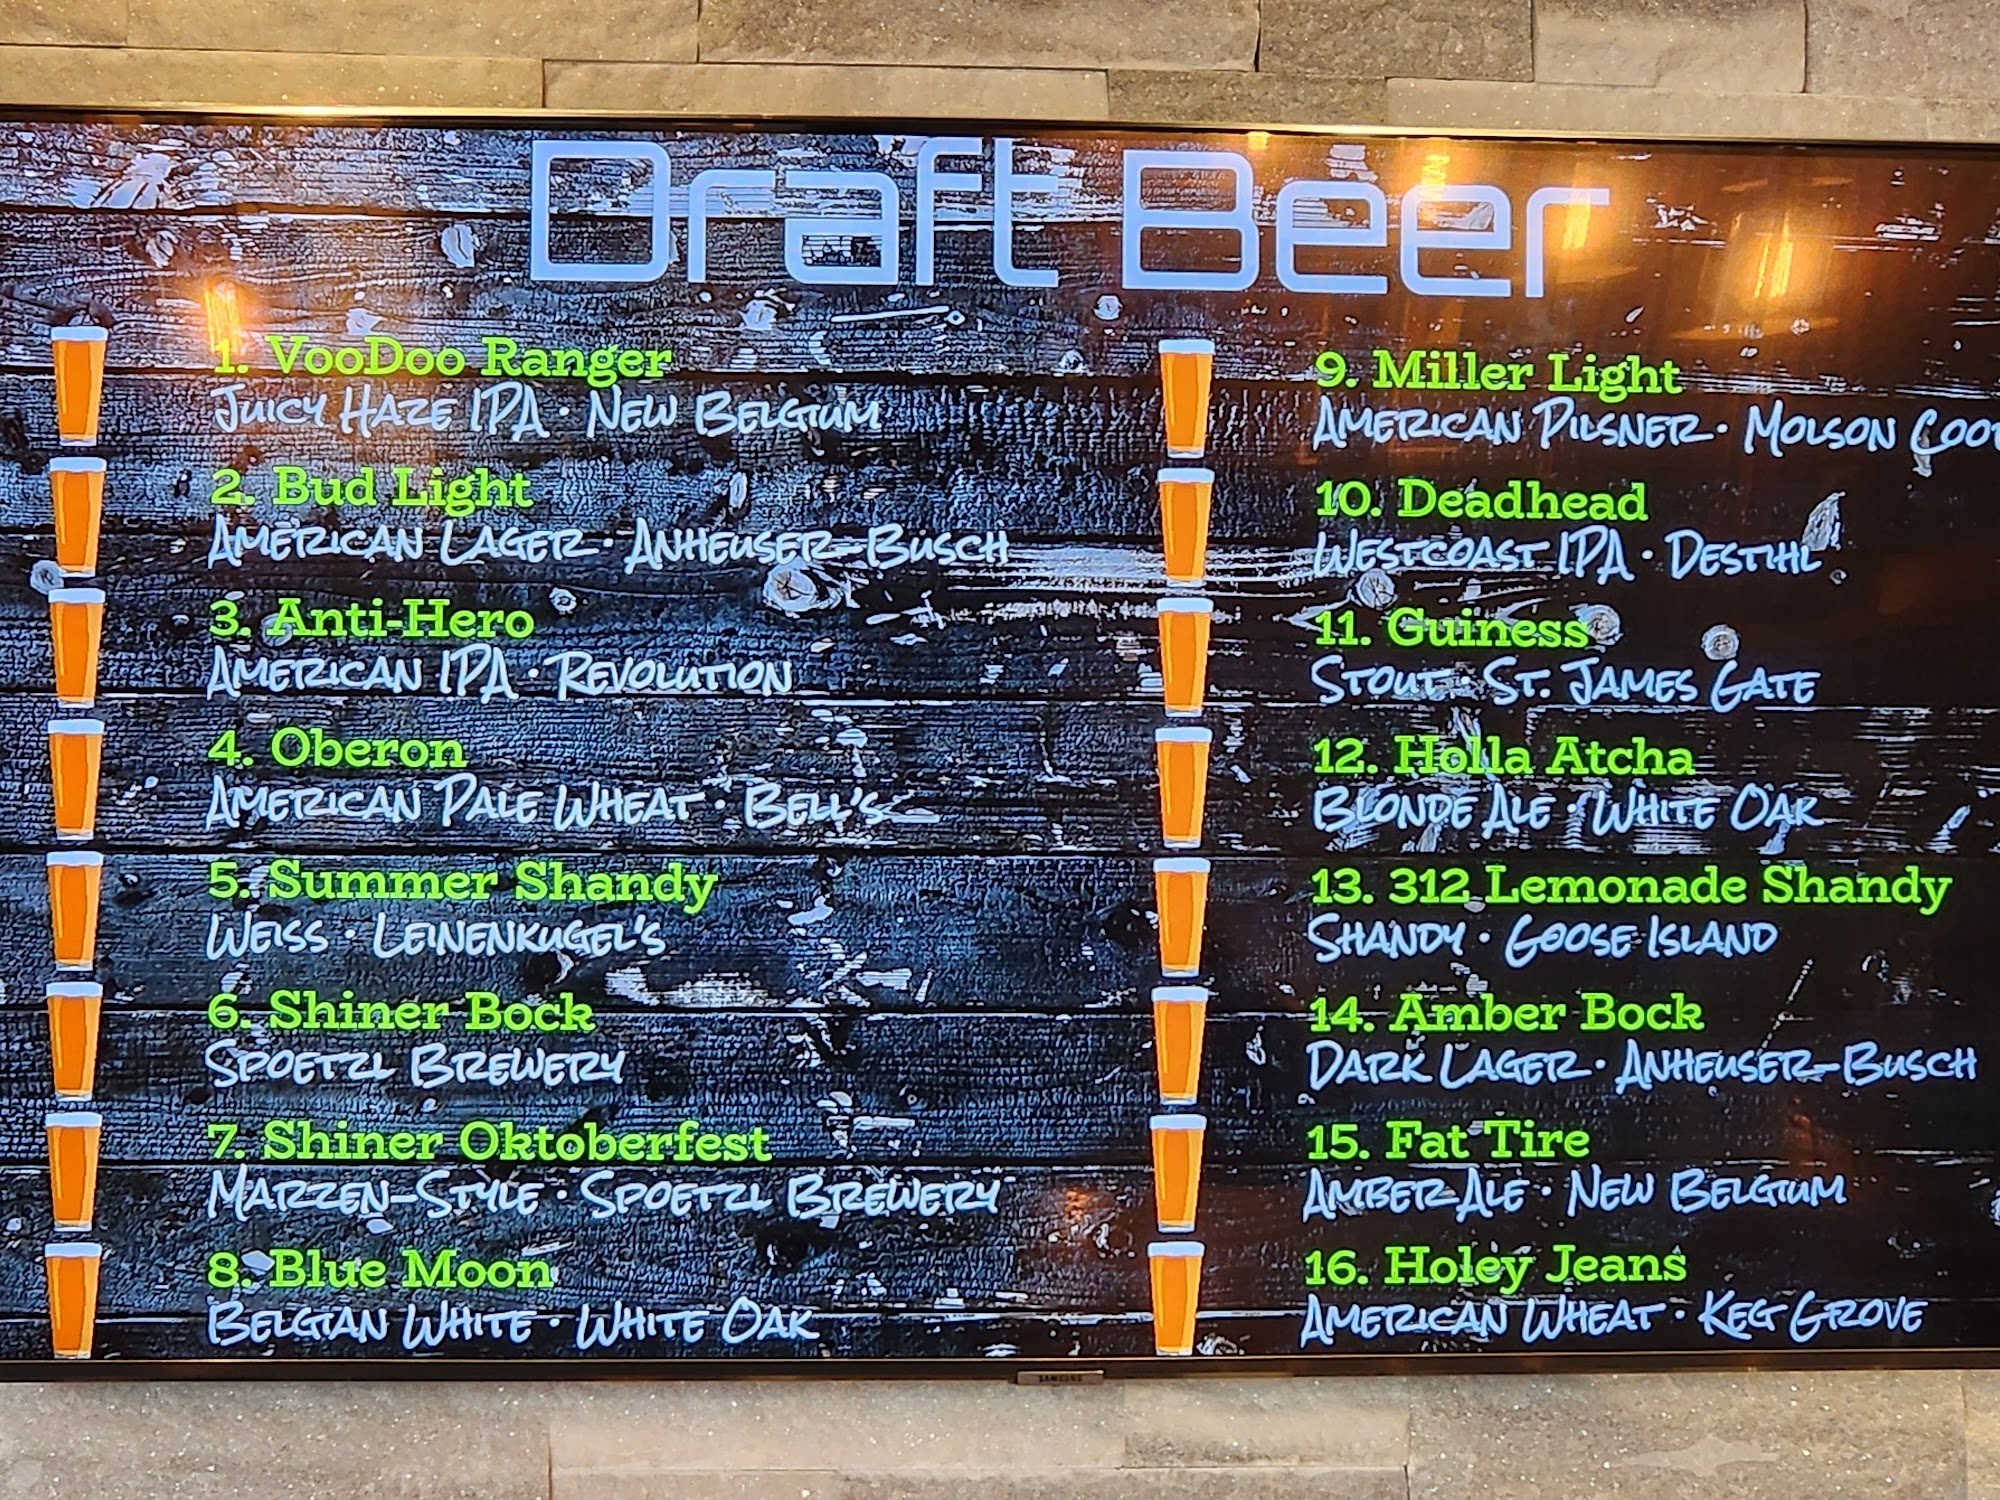 Draft Beer
1. VooDoo Ranger
Juicy Haze IPA · New Belgium
2. Bud Light
American Lager · Anheuser-Busch
3. Anti-Hero
American IPA · Revolution
4. Oberon
American Pale Wheat · Bell's
5. Summer Shandy
Weiss · Leinenkugel's
6. Shiner Bock
Spoetzl Brewery
7. Shiner Oktoberfest
Marzen-Style · Spoetzl Brewery
8. Blue Moon
Belgian White · White Oak
9. Miller Light
American Pilsner · Molson
10. Deadhead
Westcoast IPA · Destihl
11. Guiness
Stout · St. James Gate
12. Holla Atcha
Blonde Ale · White Oak
13. 312 Lemonade Shandy
Shandy · Goose Island
14. Amber Bock
Dark Lager · Anheuser-Busch
15. Fat Tire
Amber Ale · New Belgium
16. Holey Jeans
American Wheat · Keg Grove
SAMSUNG